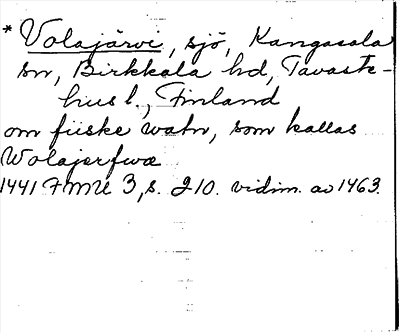 * Volajärvi, sjö, Kangasala
sn, Birkkala hd, Tavaste-
hus l., Finland
om fiiske watn, som kallas
Wolajerfwæ
1441 FMU 3, s. 210. vidim. av 1463.